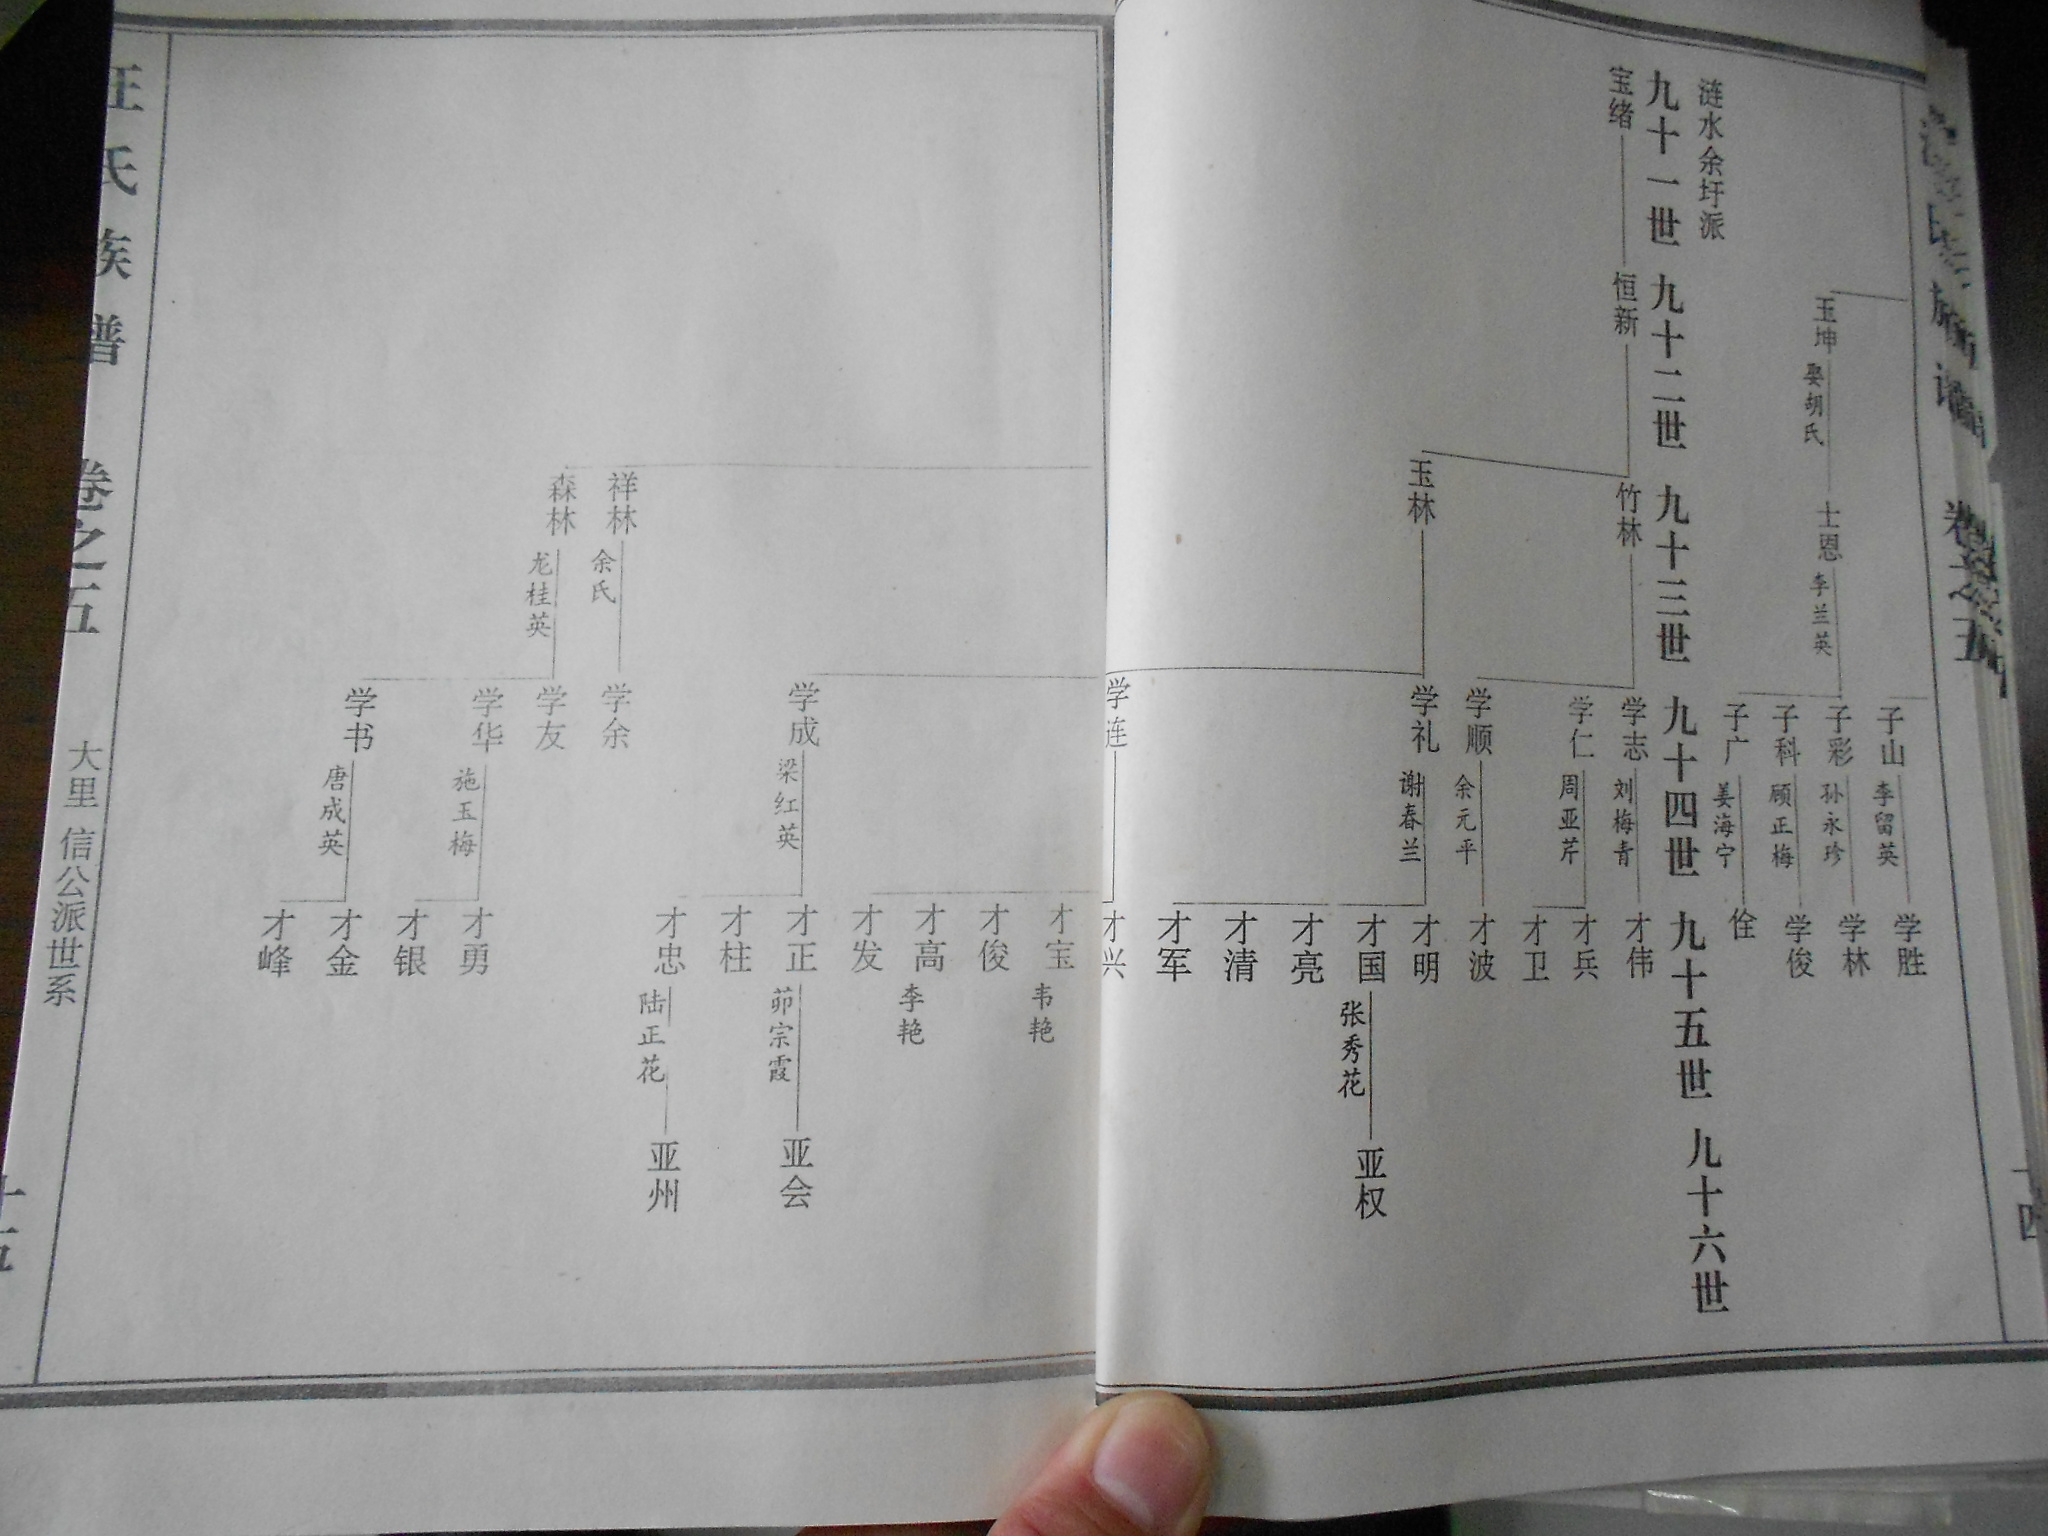 汪氏族谱 卷之五
十四
玉坤
娶胡氏
士恩
李兰英
子山
李留英
学胜
子彩
孙永珍
学林
子科
顾正梅
学俊
子广
姜海宁
佺
涟水余圩派
九十一世 九十二世 九十三世 九十四世 九十五世 九十六世
宝绪
恒新
竹林
学志
刘梅青
才伟
学仁
周亚芹
才兵
才卫
学顺
余元平
才波
玉林
学礼
谢春兰
才明
才国
张秀花
亚权
才亮
才清
才军
学连
才兴
才宝
韦艳
才俊
才高
李艳
才发
学成
梁红英
才正
茆宗霞
亚会
才柱
才忠
陆正花
亚州
祥林
余氏
学余
森林
龙桂英
学友
学华
施玉梅
才勇
才银
学书
唐成英
才金
才峰
汪氏族谱 卷之五 大里 信公派世系 十五